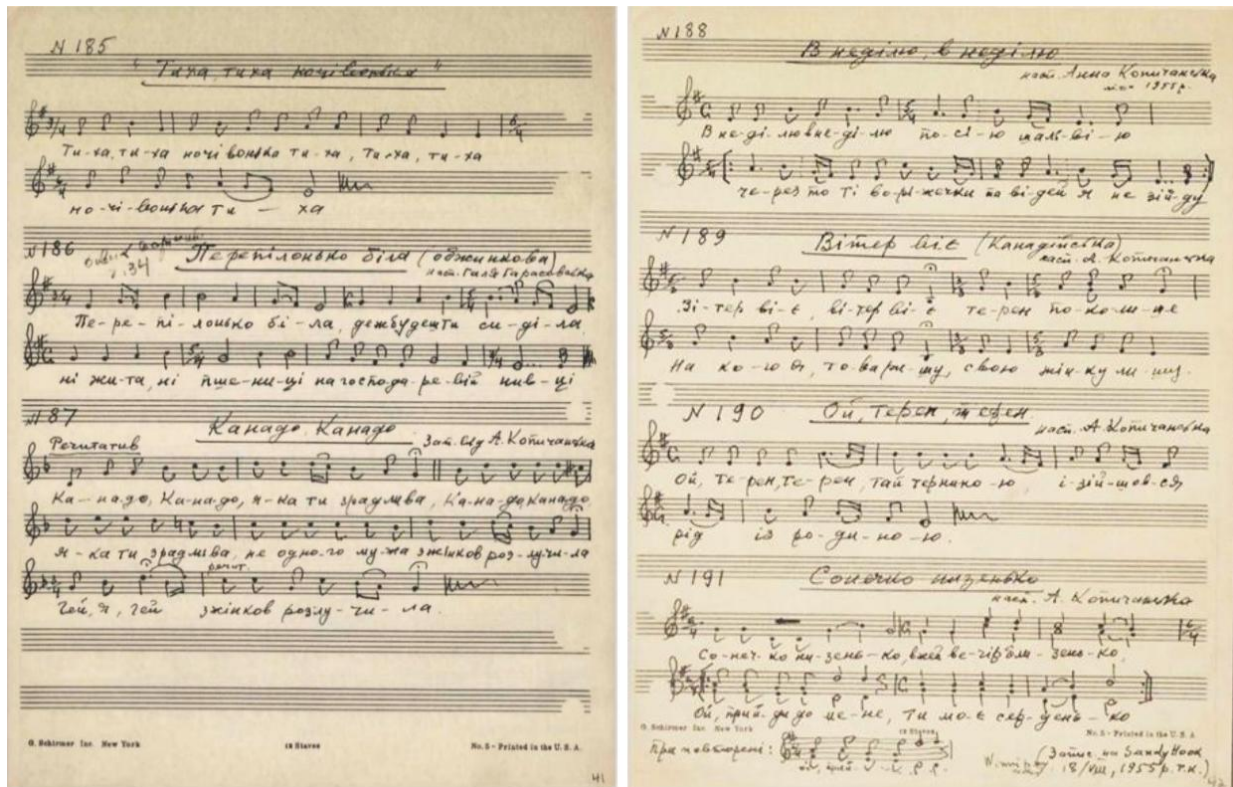 N 185
"Тиха, тиха ночівонька"
Ти-ха, ти-ха ночівонька ти-ха, ти-ха, ти-ха
но-чі-вонька ти - ха
N 186
с. 34
Перепілонько біла (обжинкова)
наст. Галя Тарасовська
Пе-ре-пі-лонько бі-ла, дежбудешти си-ділa,
ні жи-та, ні пше-ни-ці на господа-ре-вій нив-ці
N 187
Канадо, Канадо
Зап. від А. Копичанська
Речитатив
Ка-на-до, Ка-на-до, я-ка ти зрадлива, Ка-на-до, Канадо
я-ка ти зрадліва, не одно-го му-жа зжінков роз-лучи-ла
речит.
Гей, я, гей зжінков розлу-чи-ла.
G. Schirmer Inc. New York
12 Staves
No. 5 - Printed in the U.S.A.
41
N 188
В неділю, в неділю
наст. Анна Копичанська
1955 р.
В не-ді-лю в не-ді-лю по-сі-ю шаль-ві-ю
че-рез то ті во-рі-жечки
я не зій-ду
N 189
Вітер віє (Канадійська)
наст. А. Копичанська
Ві-тер ві-є, ві-тер ві-є те-рен по-ко-ли-ше
На ко-го ж, то-ва-ри-шу, свою жін-ку ли-шиш.
N 190
Ой, терен, терен
наст. А. Копичанська
Ой, те-рен, те-рен, тай терника-ю, і-зій-шов-ся
рід із ро-ди-но-ю.
N 191
Сонечко низенько
наст. А. Копичанська
Со-неч-ко ни-зень-ко, вжей ве-чір бли-зень-ко,
Ой, прий-ди до ме-не, ти мо-є сер-день-ко
G. Schirmer Inc. New York
12 Staves
No. 5 - Printed in the U.S.A.
При повторені:
(Запис. на Sandy Hook
18/VIII, 1955 р. т.к.)
42